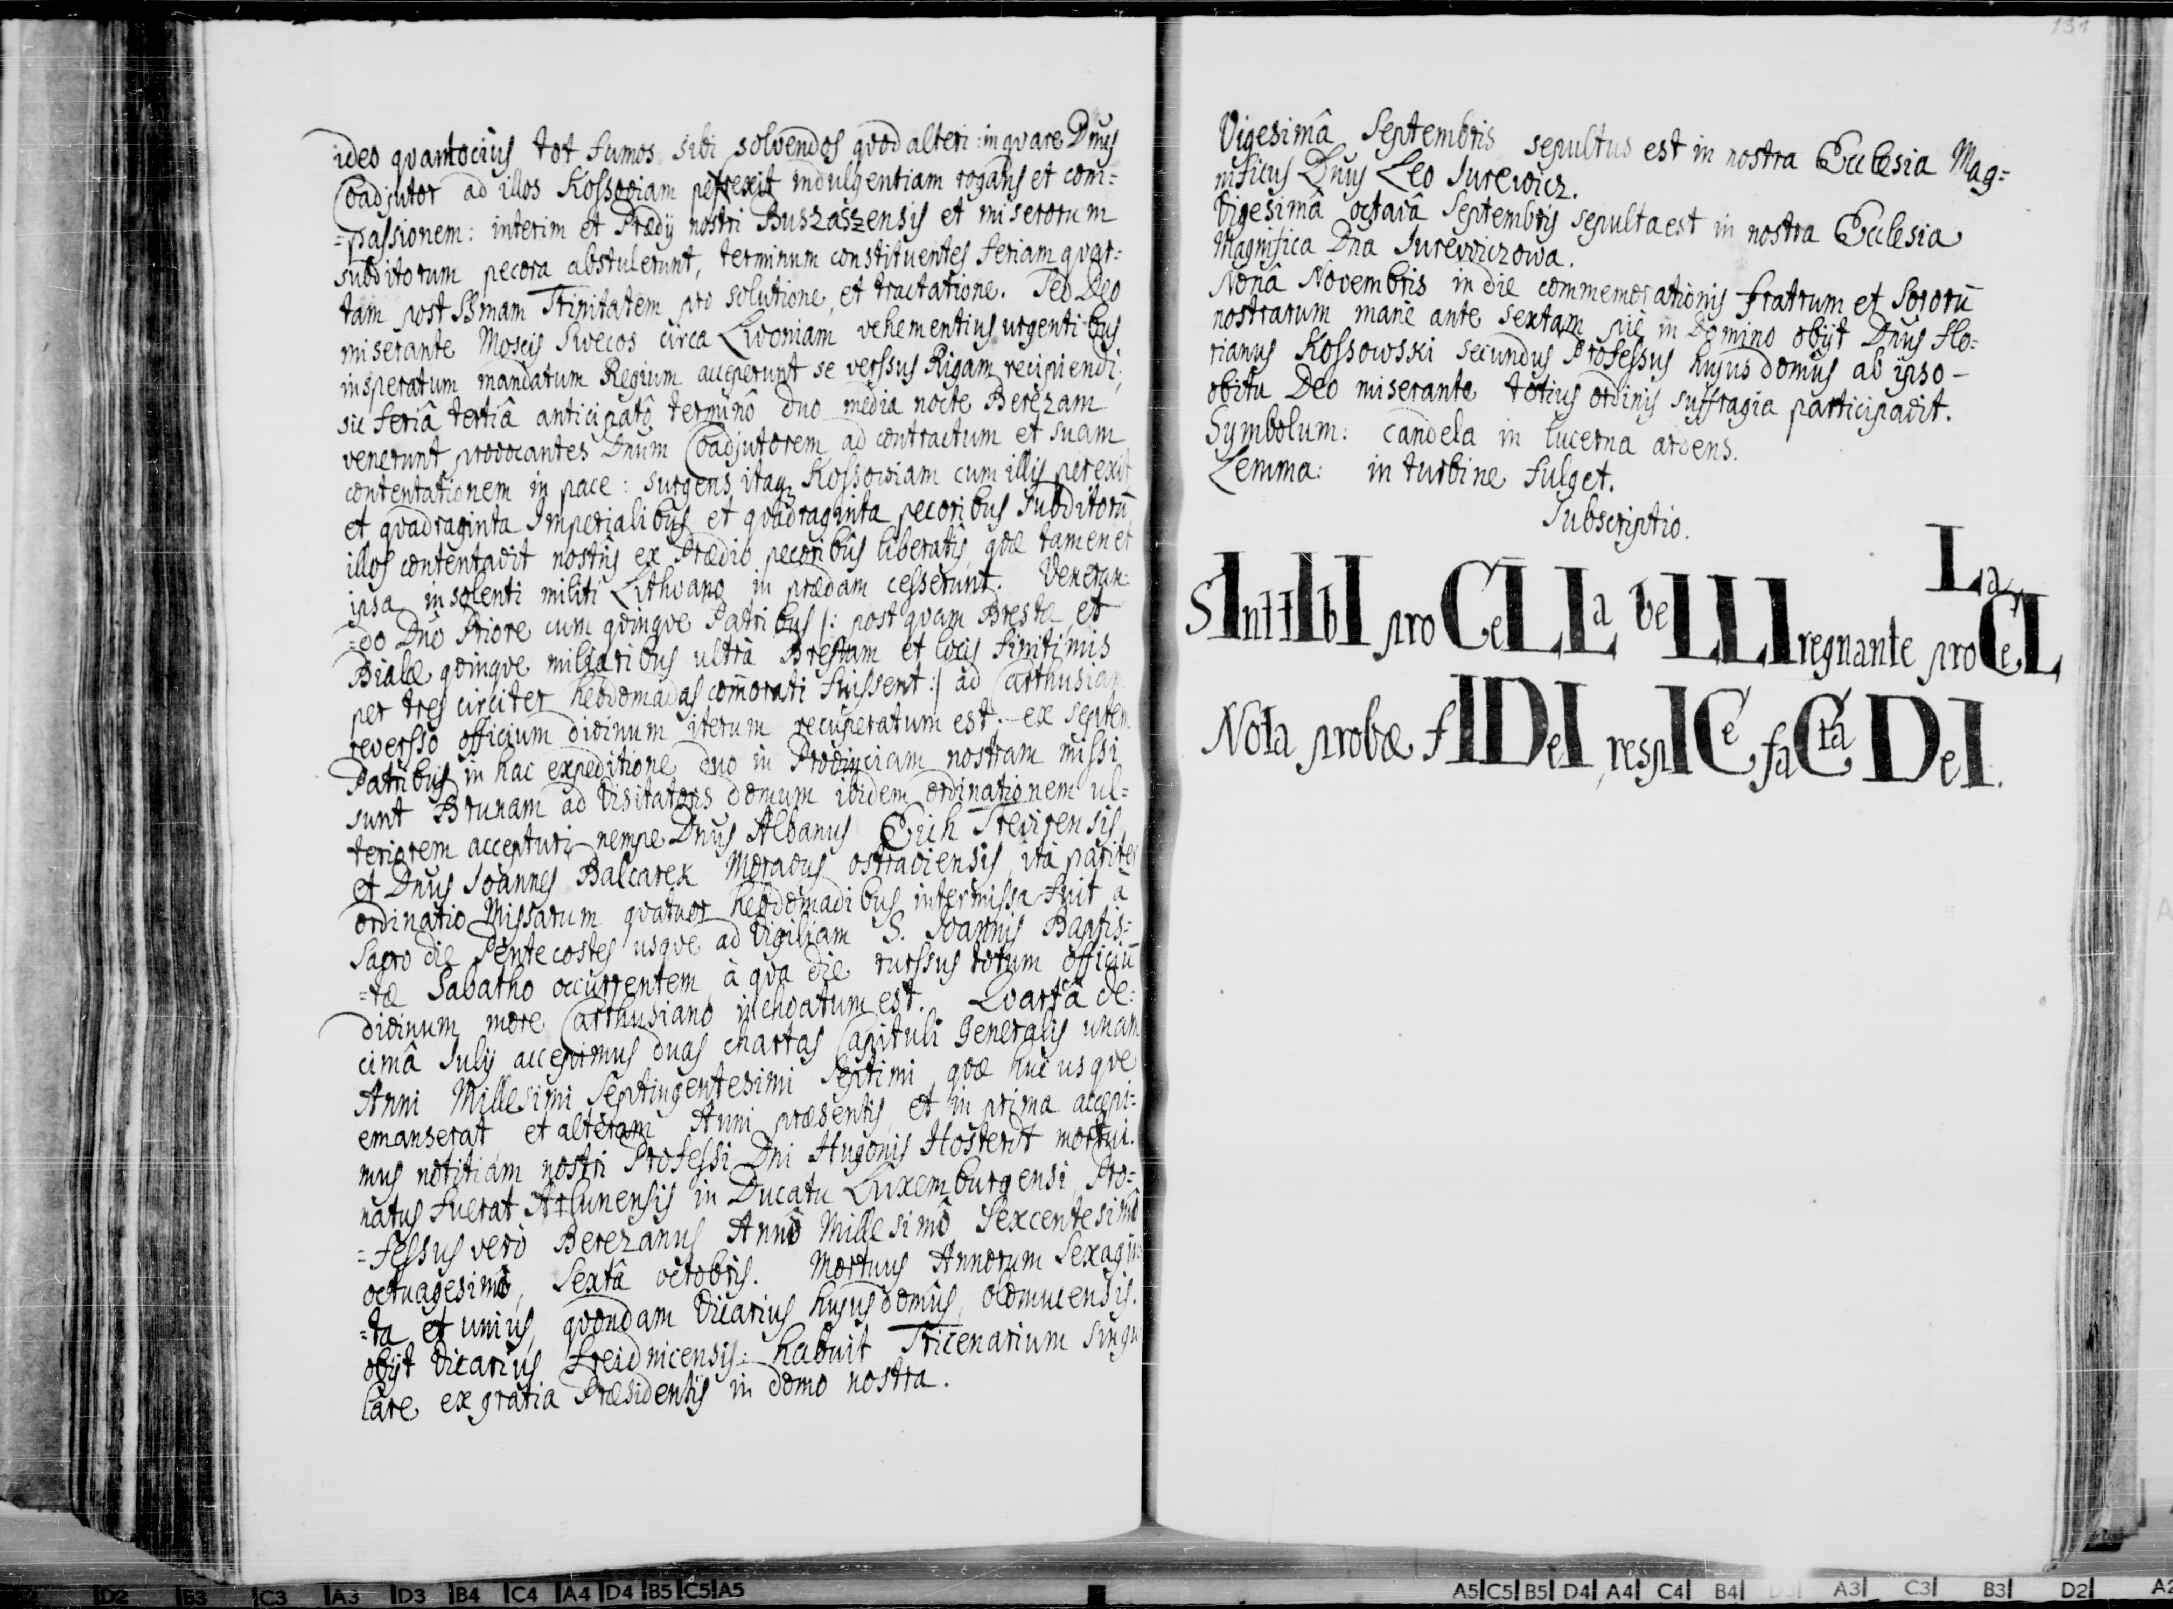 ideo quantocius tot fumos sibi solvendos quod alteri: in quare Dnus
Coadjutor ad illos Kossoviam perrexit indulgentiam rogans et com=
=passionem: interim et Prædij nostri Buszaszensis et miserorum
subditorum pecora abstulerunt, terminum constituentes feriam quar=
tam post SSmam Trinitatem pro solutione, et tractatione. Sed Deo
miserante Moscis Swecos circa Livoniam vehementius urgentibus
insperatum mandatum Regium acceperunt se verssus Rigam recipiendi;
sic feriâ tertiâ anticipatô terminô duo media nocte Berezam
venerunt provocantes Dnum Coadjutorem ad contractum et suam
contentationem in pace: surgens itaq Kossoviam cum illis perexit
et quadraginta Imperialibus et quadraginta pecoribus subditorū
illos contentavit nostris ex Prædio pecoribus liberatis, quæ tamen et
ipsa insolenti militi Lithvano in prædam cesserunt. Veneran:
=do Dno Priore cum quinque Patribus /: post quam Brestæ, et
Bialæ quinque miliaribus ultra Brestam et locis finitimis
per tres circiter hebdomadas com̄orati fuissent :/ ad Carthusiam
reversso officium divinum iterum recuperatum est. ex septem
Patribus in hac expeditione duo in Provinciam nostram missi
sunt Brunam ad Visitatoris domum ibidem ordinationem ul=
teriorem accepturi nempe Dnus Albanus Erich Trevirensis,
et Dnus Joannes Balcarek Moravus ostraviensis, ità pariter
ordinatio Missarum quatuor hebdomadibus intermissa fuit à
Sacro die Pentecostes usque ad Vigiliam S. Joannis Baptis=
=tæ Sabatho occurrentem à qua die rurssus totum officiū
divinum more Carthusiano inchoatum est. Quartâ de:
cimâ Julij accepimus duas chartas Capituli Generalis unam
Anni Millesimi Septingentesimi Septimi quæ huc usque
emanserat et alteram Anni præsentis, et in prima accepi=
mus notitiam nostri Professi Dni Hugonis Hosterdt mortui.
natus fuerat Arlunensis in Ducatu Luxemburgensi, Pro=
=fessus verò Berezanus Annô Millesimô Sexcentesimô
octuagesimô, Sextâ octobris. Mortuus Annorum Sexagin:
=ta et unius, quondam Vicarius hujus domûs, olomucensis.
obijt Vicarius Freidnicensis: habuit Tricenarium singu
lare ex gratia Præsidentis in domo nostra.
131
Vigesimâ Septembris sepultus est in nostra Ecclesia Mag=
nificus Dnus Leo Jurewicz.
Vigesimâ octavâ Septembris sepulta est in nostra Ecclesia
Magnifica Dna Jurewiczowa.
Nonâ Novembris in die commemorationis fratrum et Sororū
nostrarum manè ante sextam piè in Domino obijt Dnus Flo=
rianus Kossowski secundus Professus hujus domûs ab ipso -
obitu Deo miserante totius ordinis suffragia participavit.
Symbolum: Candela in lucerna ardens.
Lemma: in turbine fulget.
Subscriptio.
SIntIbI proCeLLa veLLI regnante proCeLLa
Nota probæ fIDeI, respICe faCta DeI.